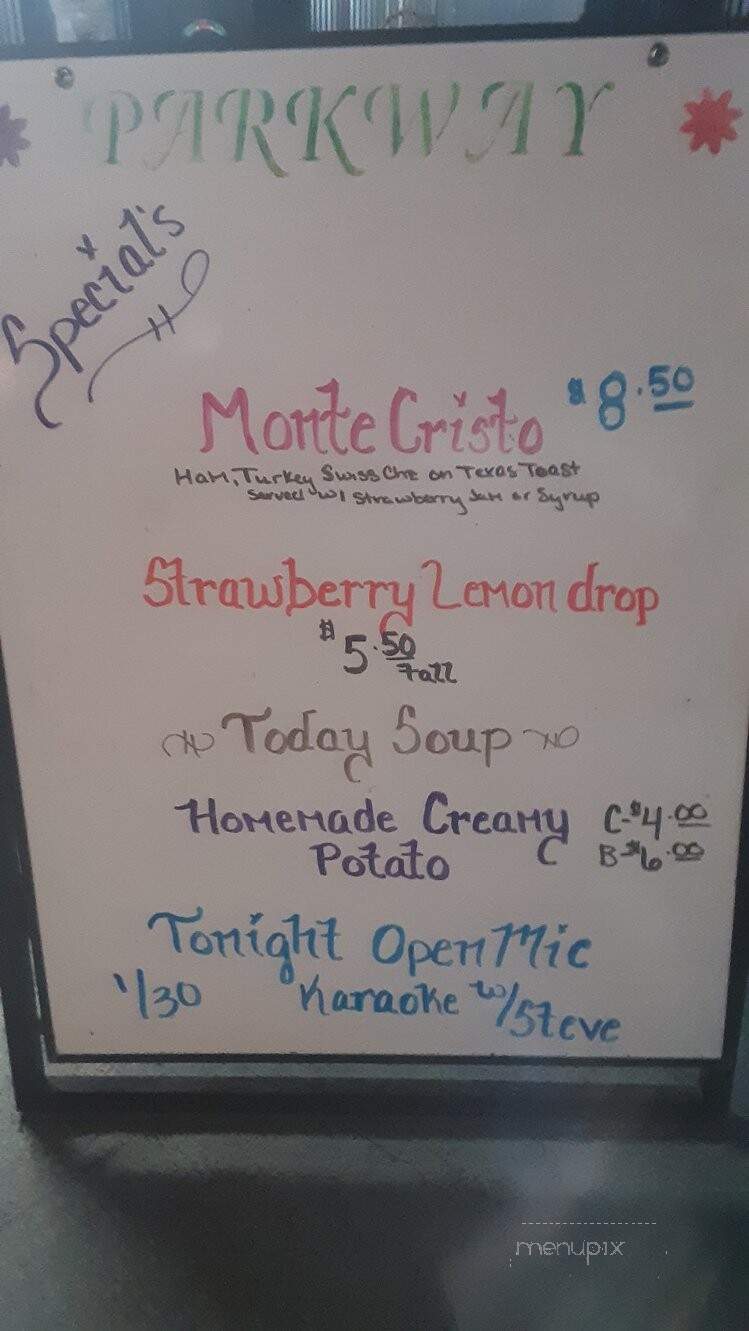 PARKWAY
Special's
Monte Cristo $8.50
Ham, Turkey Swiss Chz on Texas Toast
Served w/ Strawberry Jam or Syrup
Strawberry Lemon drop
$5.50
Tall
Today Soup
Homemade Creamy C-$4.00
Potato B-$6.00
Tonight Open Mic
1/30 Karaoke w/Steve
menupix